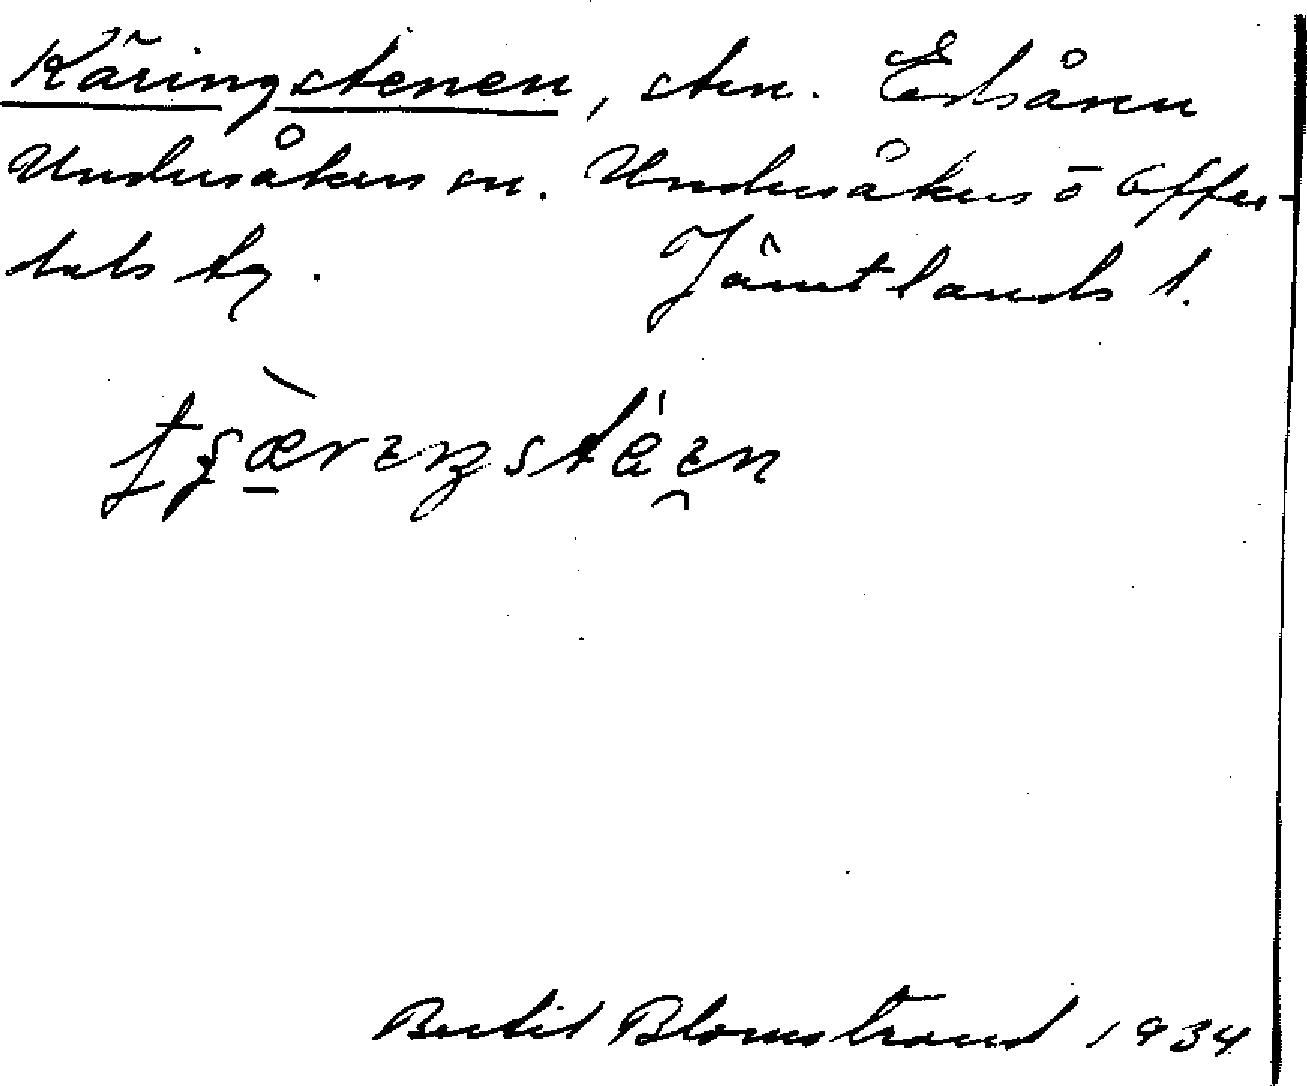 Käringstenen, sten. Edsåsen
Undersåkers sn. Undersåkers o Offer-
dals tg. Jämtlands l.
Bertil Blomstrand 1934